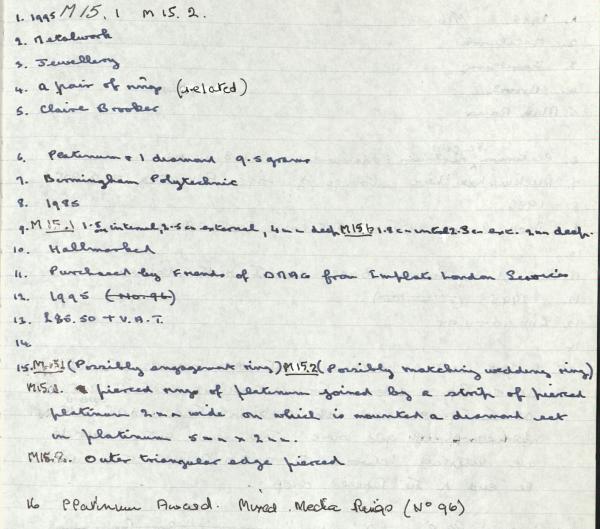 1. 1995 M15.1 M15.2.
2. Metalwork
3. Jewellery
4. a pair of rings (related)
5. Claire Brooker
6. Platinum & 1 diamond 9.5 grams
7. Birmingham Polytechnic
8. 1985
9. M15.1 1.5 cm internal, 2.5 cm external, 4mm deep M15.2 1.8 cm internal 2.3 cm ext. 2mm deep.
10. Hallmarked
11. Purchased by Friends of DMAG from Implats London Services
12. 1995 (No. 96)
13. £86.50 + V.A.T.
14.
15. M15.1 (Possibly engagement ring) M15.2 (Possibly matching wedding ring)
M15.1. pierced rings of platinum joined by a strip of pierced
platinum 2mm wide on which is mounted a diamond set
in platinum 5mm x 2mm.
M15.2. Outer triangular edge pierced
16 Platinum Award. Mixed Media Rings (No 96)